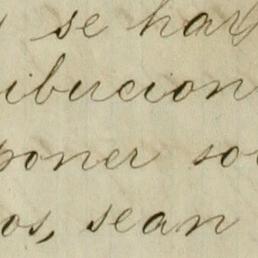 se har
ibucion
poner so
os, sean